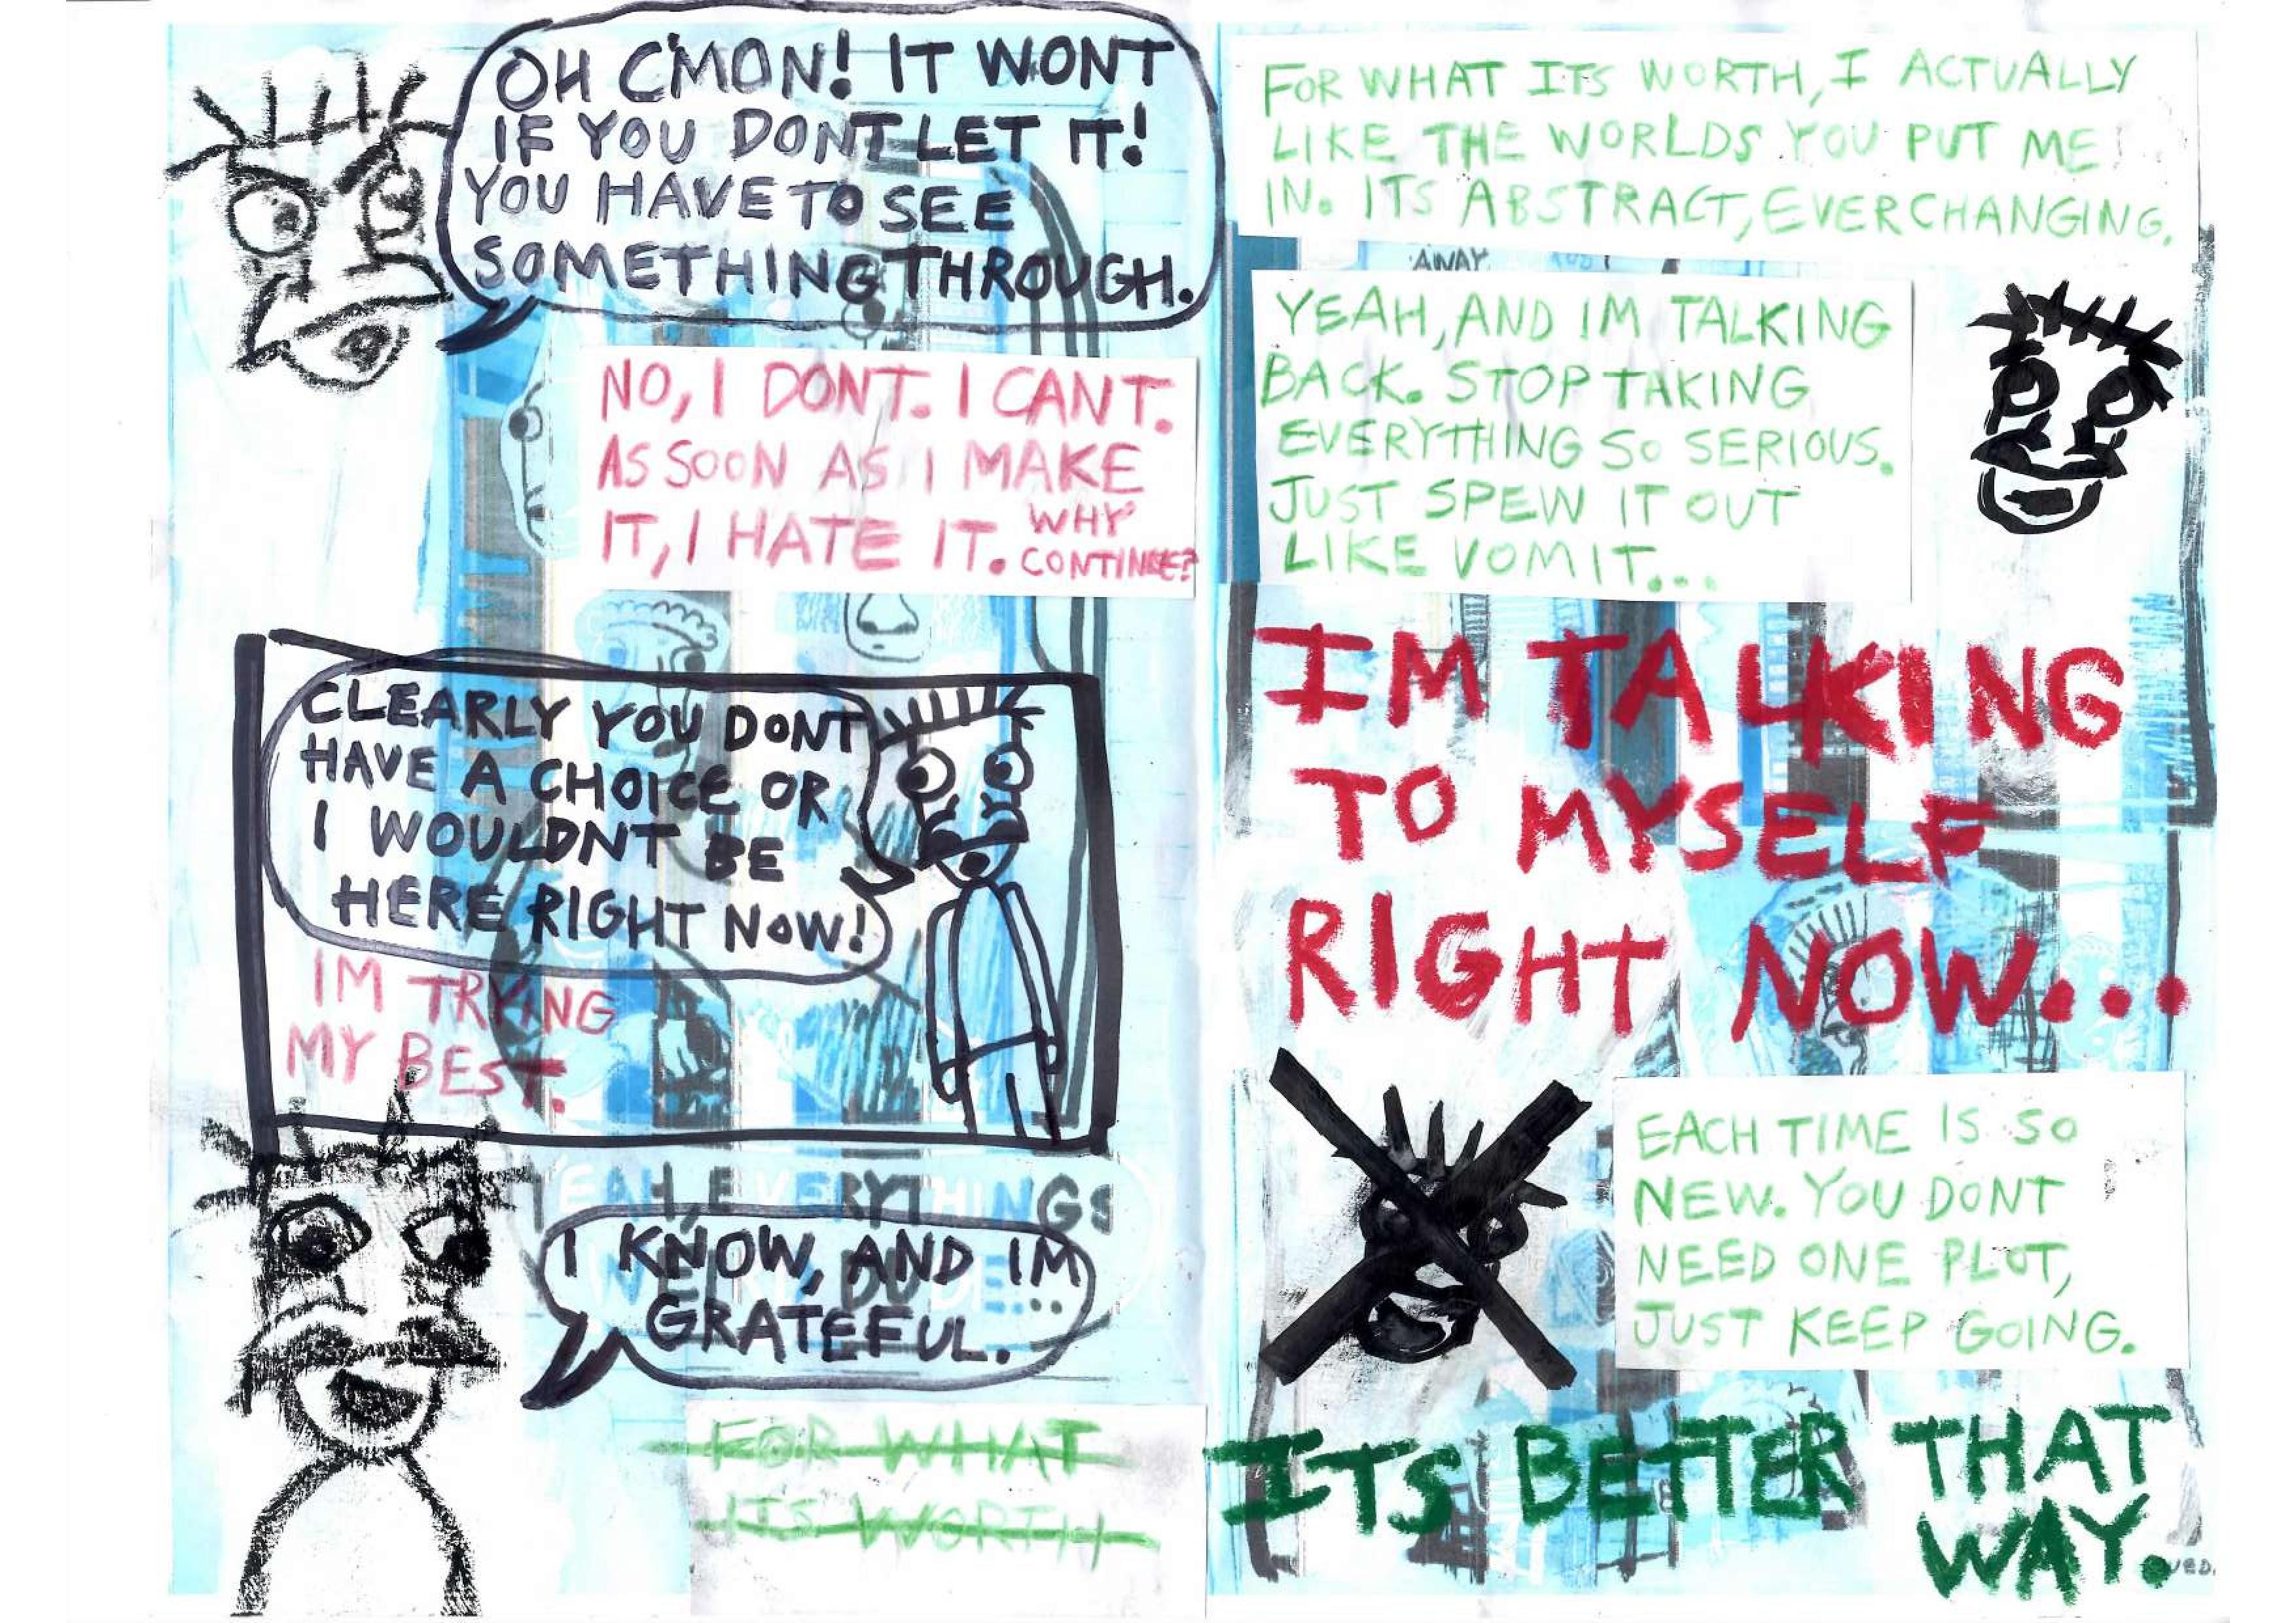 OH C'MON! IT WONT
IF YOU DONT LET IT!
YOU HAVE TO SEE
SOMETHING THROUGH.
NO, I DONT. I CANT.
AS SOON AS I MAKE
IT, I HATE IT. WHY
CONTINUE?
CLEARLY YOU DONT
HAVE A CHOICE OR
I WOULDNT BE
HERE RIGHT NOW!
IM TRYING
MY BEST.
YEAH, EVERYTHINGS
I KNOW, AND IM
GRATEFUL.
FOR WHAT
ITS WORTH
FOR WHAT ITS WORTH, I ACTUALLY
LIKE THE WORLDS YOU PUT ME
IN. ITS ABSTRACT, EVERCHANGING.
AWAY
YEAH, AND IM TALKING
BACK. STOP TAKING
EVERYTHING SO SERIOUS.
JUST SPEW IT OUT
LIKE VOMIT...
IM TALKING
TO MYSELF
RIGHT NOW...
EACH TIME IS SO
NEW. YOU DONT
NEED ONE PLOT,
JUST KEEP GOING.
ITS BETTER THAT
WAY.